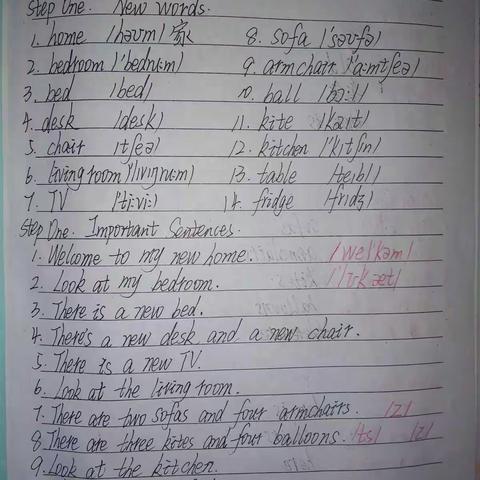 Step One. New Words.
1. home /həʊm/ 家 8. sofa /'səʊfə/
2. bedroom /'bedruːm/ 9. armchair /'ɑːmtʃeə/
3. bed /bed/ 10. ball /bɔːl/
4. desk /desk/ 11. kite /kaɪt/
5. chair /tʃeə/ 12. kitchen /'kɪtʃin/
6. living room /'lɪvɪŋruːm/ 13. table /teɪbl/
7. TV /'tiːviː/ 14. fridge /fridʒ/
Step One. Important Sentences.
1. Welcome to my new home. /welkəm/
2. Look at my bedroom. /'lʊkæt/
3. There is a new bed.
4. There's a new desk and a new chair.
5. There is a new TV.
6. Look at the living room.
7. There are two sofas and four armchairs. /z/
8. There are three kites and four balloons. /ts/ /z/
9. Look at the kitchen.